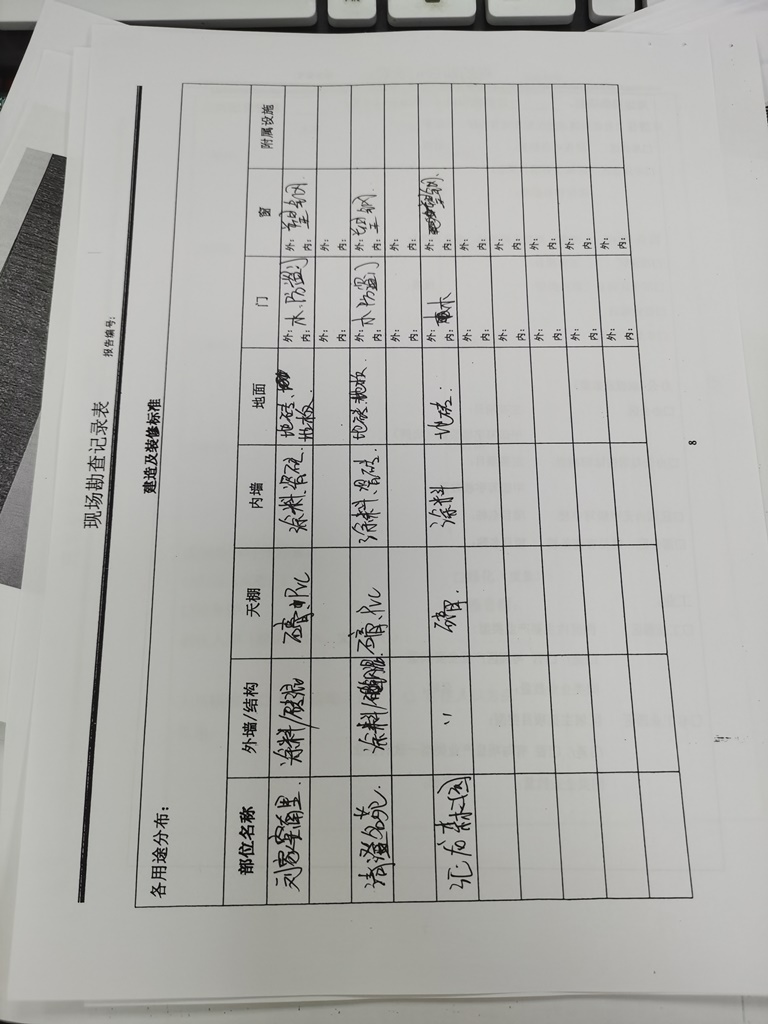 现场勘查记录表
报告编号:
建造及装修标准
各用途分布:
部位名称 外墙/结构 天棚 内墙 地面 门 窗 附属设施
刘家窑南里. 涂料/砼混 石膏、PVC 涂料、瓷砖. 地砖、地板. 外: 木、防盗门 内: 外: 塑钢. 内:
外: 内: 外: 内:
清澄名苑. 涂料/ 石膏、PVC 涂料、瓷砖. 地砖、地板. 外: 木、防盗门 内: 外: 塑钢. 内:
外: 内: 外: 内:
汇龙森 〃 涂料 地砖. 外: 木 内: 外: 塑钢. 内:
外: 内: 外: 内:
外: 内: 外: 内:
外: 内: 外: 内:
外: 内: 外: 内:
外: 内: 外: 内:
8